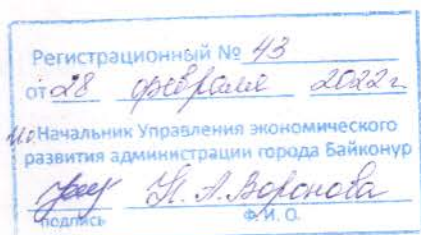 Регистрационный № 43
от 28 февраля 2022 г.
И.о. Начальник Управления экономического
развития администрации города Байконур
Н. А. Воронова
подпись Ф.И.О.